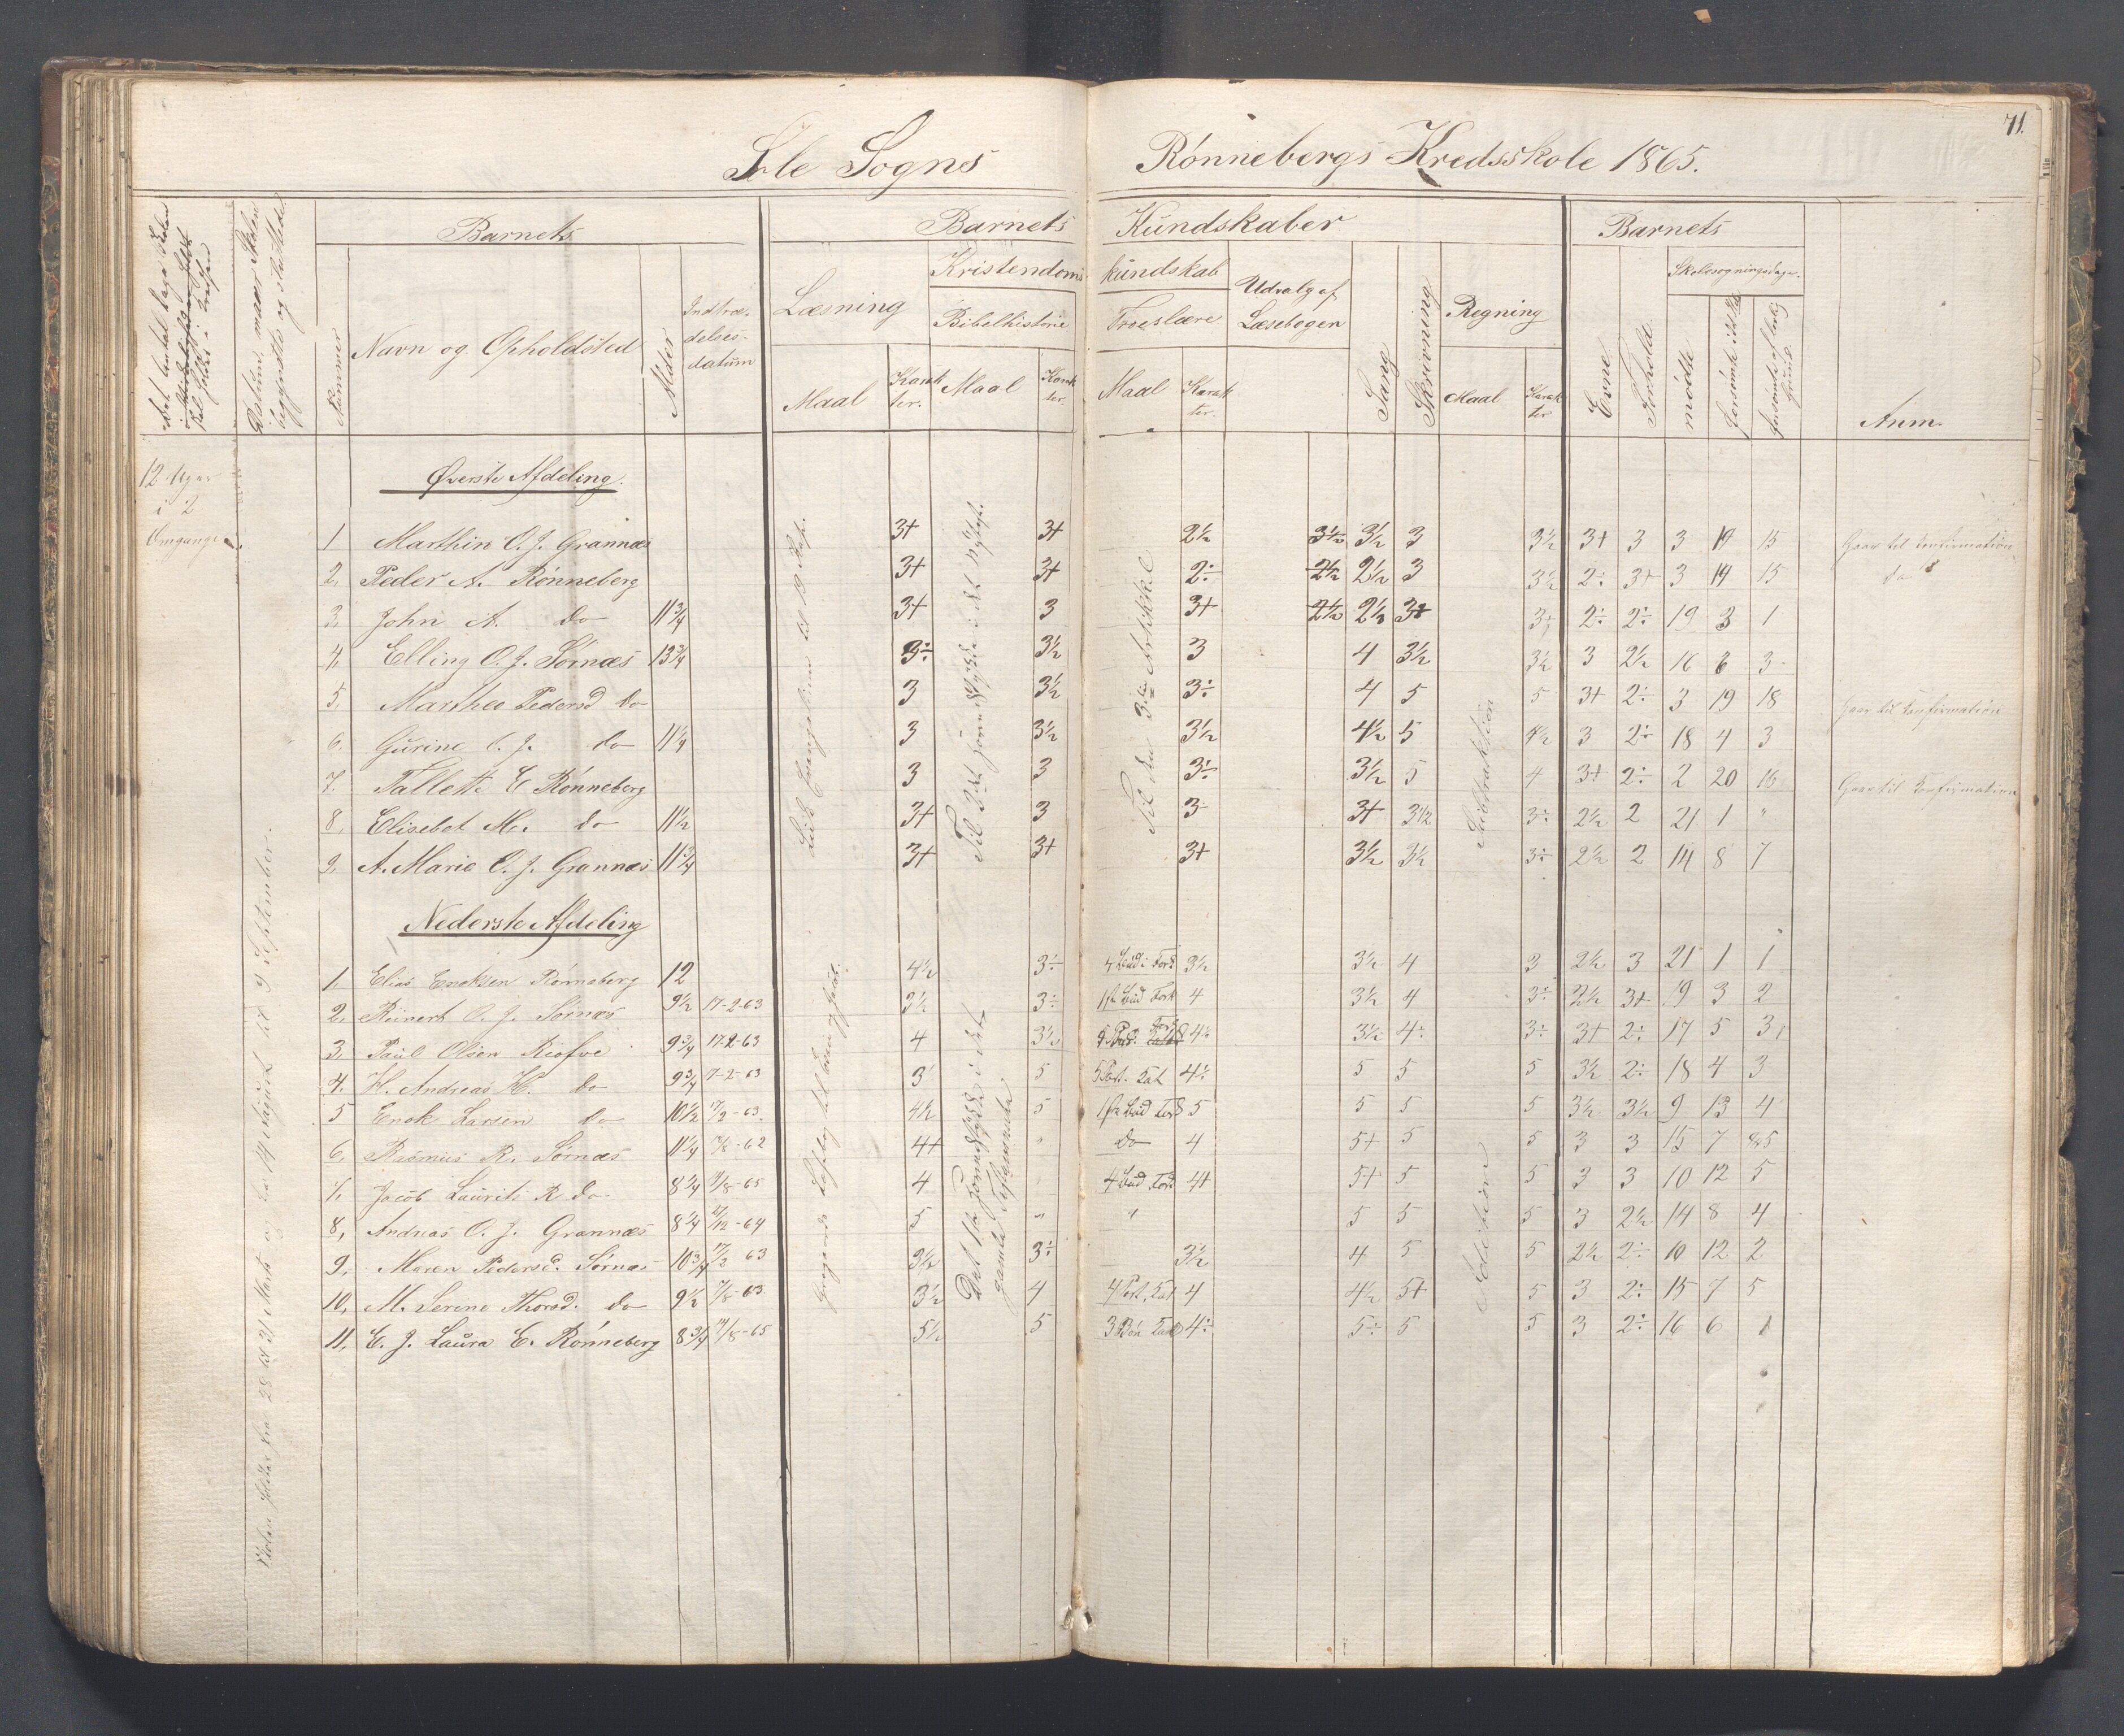 71.
Sole Sogns Rønnebergs Kredsskole 1865.
Barnets
Barnets Kundskaber
Barnets
Nummer
Navn og Opholdsted
Alder
Indtræ-
delses-
datum
Læsning
Maal
Karak
ter.
Kristendoms-
kundskab
Bibelhistorie
Maal
Karak
ter.
Troeslære
Maal
Karak
ter.
Udvalg af
Læsebogen
Sang
Skrivning
Regning
Maal
Karak
ter
Evne
Forhold
Skolesøgningsdage.
mødte
Anm.
12 Uger
i 2
Omgange.
Øverste Afdeling.
1 Marthin O. J. Grannæs 3+ 3+ 2½ 3½ 3½ 3 3½ 3+ 3 3 19 15 Gaar til Konfirmation
2, Peder A. Rønneberg 3+ 3+ 2÷ 2½ 2½ 3 3½ 2÷ 3+ 3 19 15 do
3, John A. do 11¾ 3+ 3 3+ 2½ 2½ 3+ 3+ 2÷ 2÷ 19 3 1
4, Elling O. J. Sørnæs 13¾ 3÷ 3½ 3 4 3½ 3½ 3 2½ 16 6 3
5, Marthea Pedersd do 3 3½ 3÷ 4 5 5 3+ 2÷ 3 19 18 Gaar til Konfirmation
6. Gurine O. J. do 11¼ 3 3½ 3½ 4½ 5 4½ 3 2÷ 18 4 3
7. Tallette E Rønneberg 3 3 3÷ 3½ 5 4 3+ 2÷ 2 20 16 Gaar til Konfirmation
8, Elisebet M. do 11½ 3+ 3 3 3+ 3½ 3÷ 2½ 2 21 1 "
9. A. Marie O. J. Grannæs 11¾ 3+ 3+ 3+ 3½ 3½ 3÷ 2½ 2 14 8 7
Til det 3die Artikkel
Subtraktion
Nederste Afdeling
1. Elias Enoksen Rønneberg 12 4½ 3÷ 4 Bud i Fork 3½ 3½ 4 3 2½ 3 21 1 1
2, Reinert O. J. Sørnæs 9½ 17-2-63 3½ 3÷ 1ste Bud Fork 4 3½ 4 3÷ 2½ 3+ 19 3 2
3, Paul Olsen 9¾ 17-2-63 4 3½ 4÷ 3½ 4÷ 3÷ 3+ 2÷ 17 5 3
4. H. Andreas H. do 9¾ 7-2-63 3 5 5 Part. Kat 4÷ 5 5 5 3½ 2÷ 18 4 3
5 Enok Larsen do 10½ 17/2-63. 4½ 5 1ste Bud Fork 5 5 5 5 3½ 3½ 9 13 4
6, Rasmus R. Sørnæs 11¼ 17/8-62 4+ " do 4 5+ 5 5 3 3 15 7 5
7, Jacob Laurits R do. 8¾ 21/8-65 4 4 Bud Fork 4+ 5+ 5 5 3 3 10 12 5
8, Andreas O. J. Grannæs 8¼ 21/12-64 5 " " 5 5 5 3 2½ 14 8 4
9, Maren Pedersd. Sørnæs 10¾ 17/2 63 3½ 3÷ 3½ 4 5 5 2½ 2÷ 10 12 2
10, M. Serine Thorsd. do 9½ 17/8-63 3½ 4 4 Part. Kat 4 4½ 5+ 5 3 2÷ 15 7 5
11, E. J. Laura E. Rønneberg 8¾ 21/8-65 5½ 5 3 Bøn Kat 4÷ 5÷ 5 5 3 2÷ 16 6 1
Det 1ste Tidsrum i det
gamle Testamente
Addition